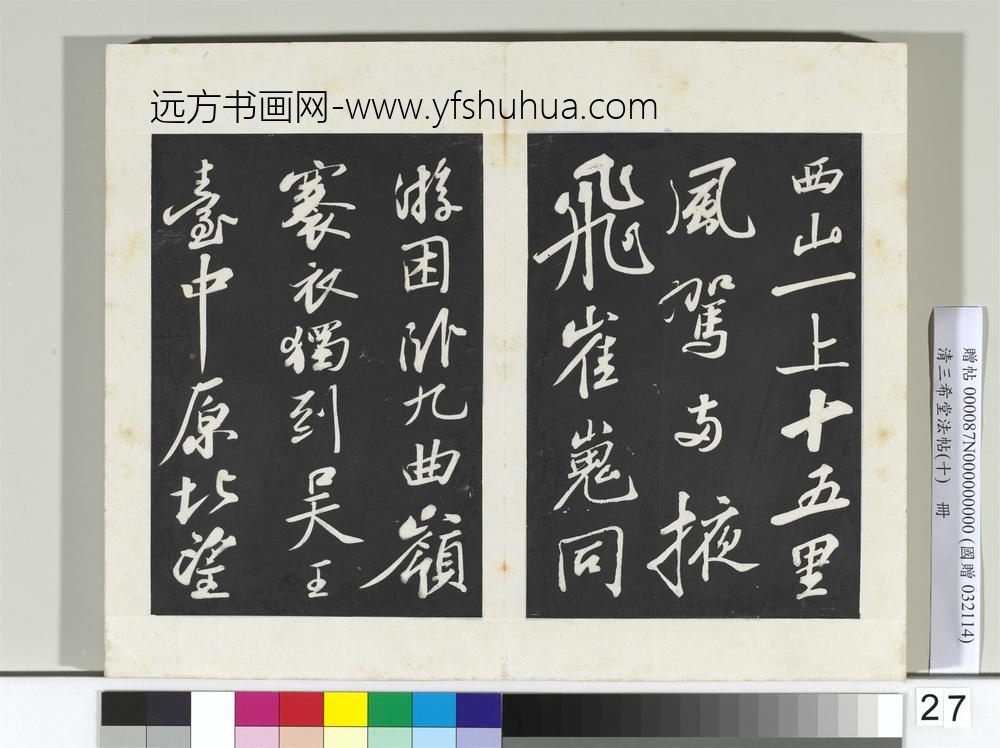 远方书画网-www.yfshuhua.com
西山一上十五里
風駕兩掖
飛崔嵬同
游困卧九曲嶺
褰衣獨到吴王
臺中原北望
贈帖 000087N000000000 (國贈 032114)
清三希堂法帖(十) 冊
27